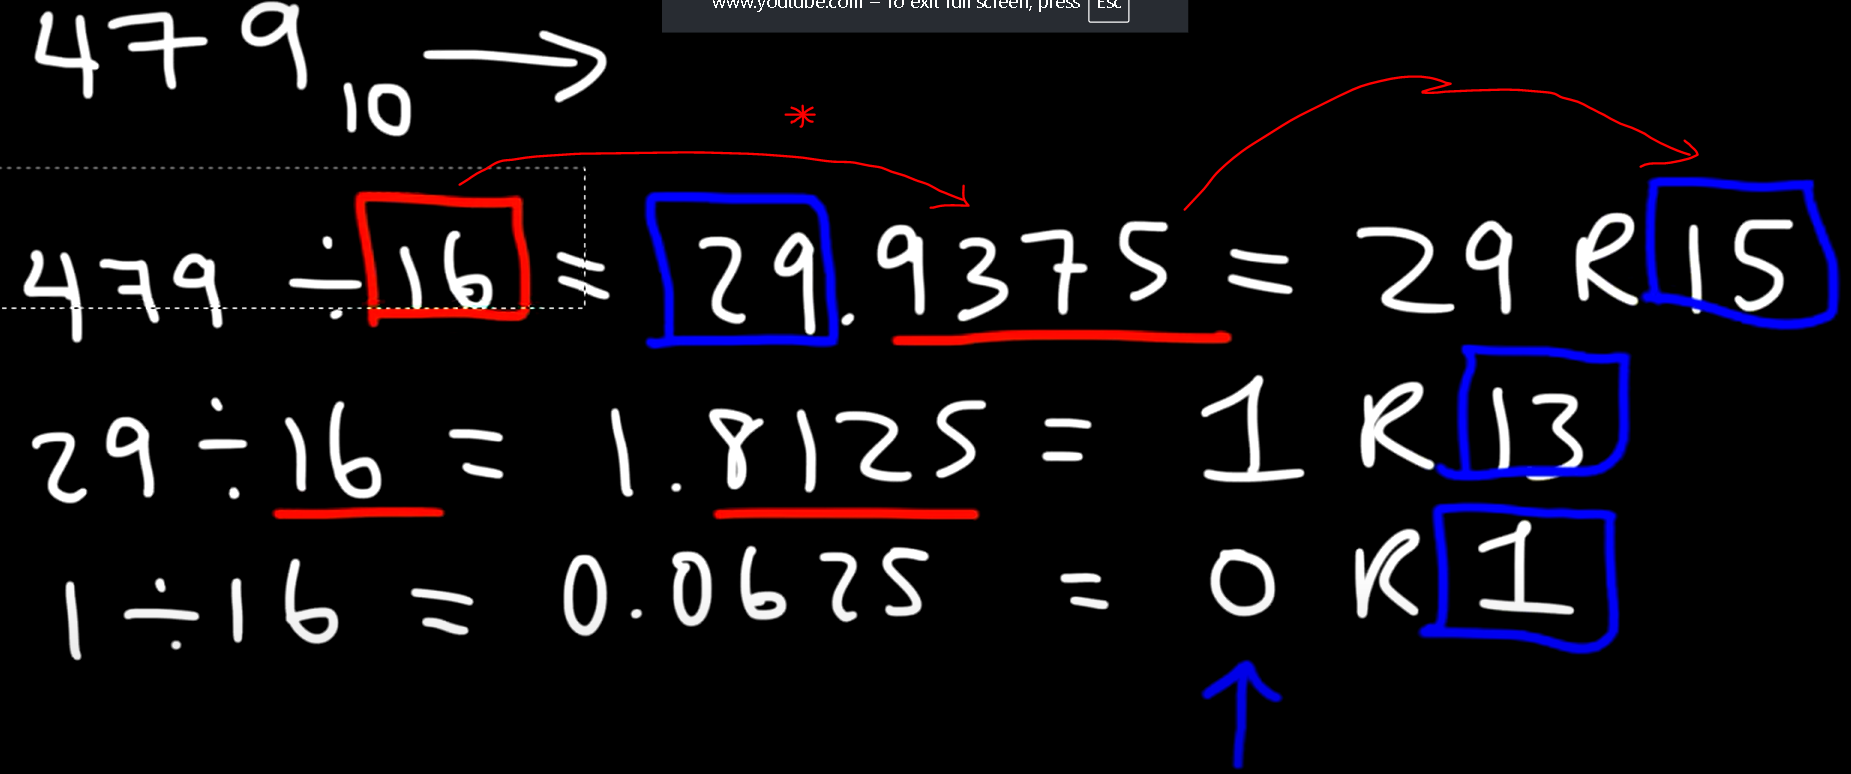 www.youtube.com – To exit full screen, press Esc
479₁₀ →
*
479 ÷ 16 = 29.9375 = 29 R 15
29 ÷ 16 = 1.8125 = 1 R 13
1 ÷ 16 = 0.0625 = 0 R 1